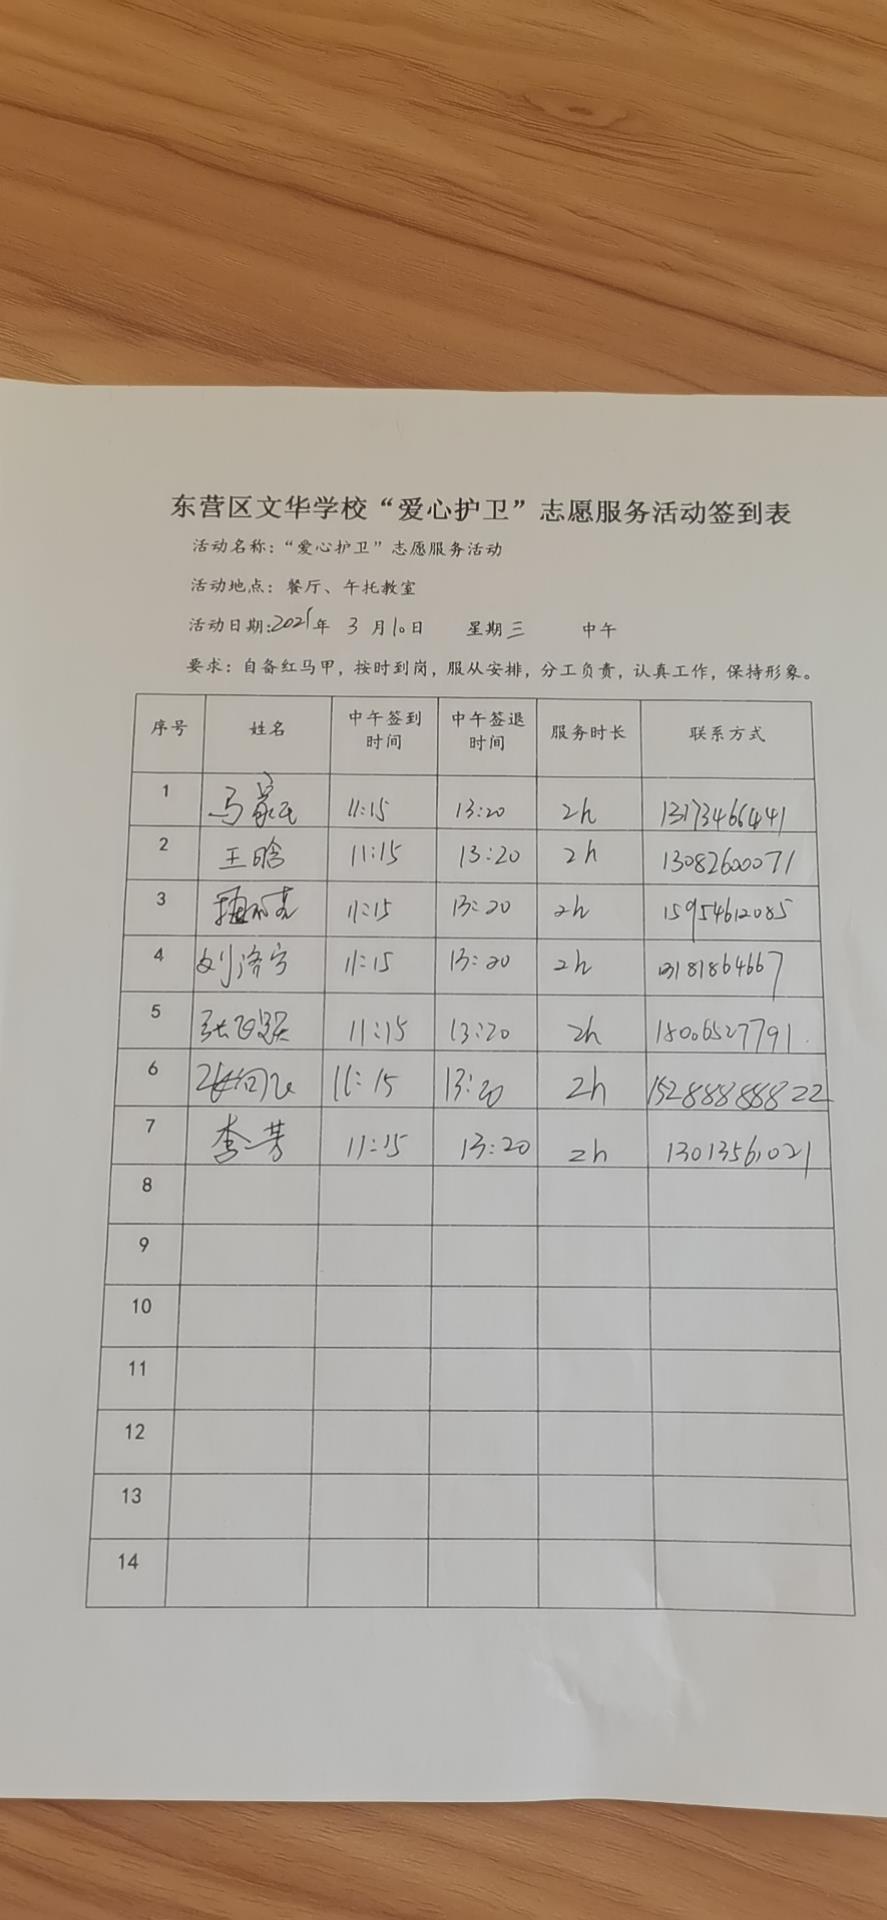 东营区文华学校“爱心护卫”志愿服务活动签到表
活动名称：“爱心护卫”志愿服务活动
活动地点：餐厅、午托教室
活动日期:2021年 3 月10日 星期三 中午
要求：自备红马甲，按时到岗，服从安排，分工负责，认真工作，保持形象。
序号 姓名 中午签到时间 中午签退时间 服务时长 联系方式
1 11:15 13:20 2h 13173466441
2 王晗 11:15 13:20 2h 13082600071
3 11:15 13:20 2h 15954612085
4 11:15 13:20 2h
5 11:15 13:20 2h 18006527791
6 11:15 13:20 2h 15288888822
7 李芳 11:15 13:20 2h 13013561021
8
9
10
11
12
13
14